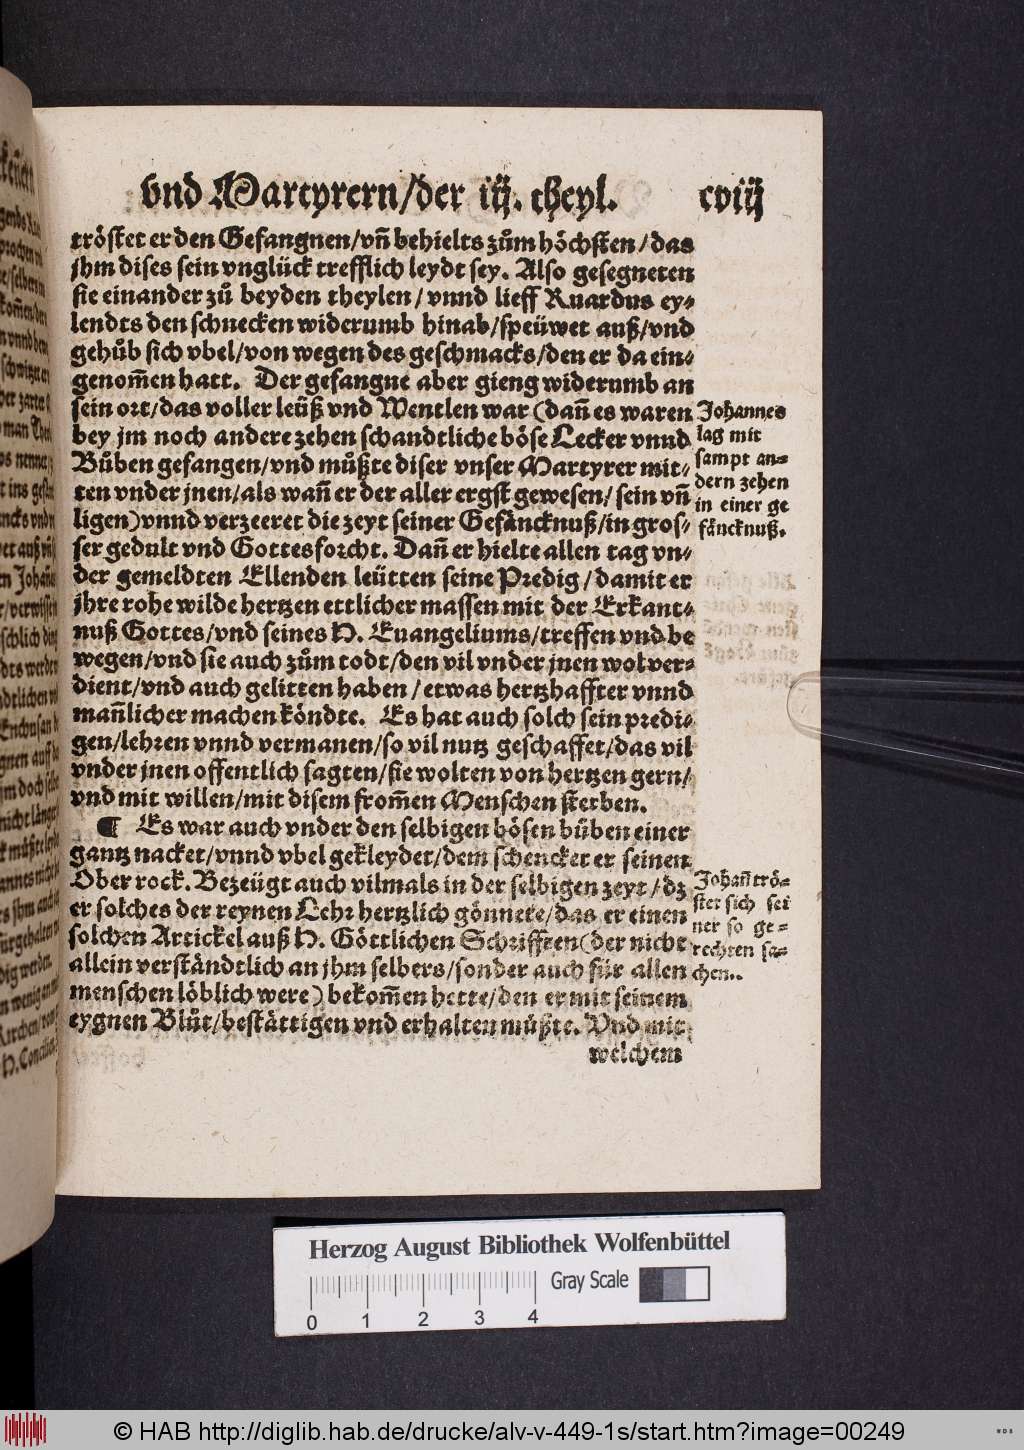 vnd Martyrern/der iij. theyl. cviij
tröstet er den Gefangnen/vñ behielts zům höchsten/das
jhm dises sein vnglück trefflich leydt sey. Also gesegneten
sie einander zů beyden theylen/vnnd lieff Ruardus ey⸗
lendts den schnecken widerumb hinab/speüwet auß/vnd
gehůb sich vbel/von wegen des geschmacks/den er da ein⸗
genom̃en hatt. Der gefangne aber gieng widerumb an
sein ort/das voller leüß vnd Wentlen war (dañ es waren
bey jm noch andere zehen schandtliche böse Lecker vnnd
Bůben gefangen/vnd můßte diser vnser Martyrer mit⸗
ten vnder jnen/als wañ er der aller ergst gewesen/sein vñ
ligen) vnnd verzeeret die zeyt seiner Gefäncknuß/in gros⸗
ser gedult vnd Gottesforcht. Dañ er hielte allen tag vn⸗
der gemeldten Ellenden leütten seine Predig/damit er
jhre rohe wilde hertzen ettlicher massen mit der Erkant⸗
nuß Gottes/vnd seines H. Euangeliums/treffen vnd be
wegen/vnd sie auch zům todt/den vil vnder jnen wol ver⸗
dient/vnd auch gelitten haben/etwas hertzhaffter vnnd
mañlicher machen köndte. Es hat auch solch sein predi⸗
gen/lehren vnnd vermanen/so vil nutz geschaffet/das vil
vnder jnen offentlich sagten/sie wolten von hertzen gern/
vnd mit willen/mit disem from̃en Menschen sterben.
¶ Es war auch vnder den selbigen bösen bůben einer
gantz nacket/vnnd vbel gekleydet/dem schencket er seinen
Ober rock. Bezeügt auch vilmals in der selbigen zeyt/dz
er solches der reynen Lehr hertzlich gönnete/das er einen
solchen Artickel auß H. Göttlichen Schrifften (der nicht
allein verständtlich an jhm selbers/sonder auch für allen
menschen löblich were) bekom̃en hette/den er mit seinem
eygnen Blůt/bestättigen vnd erhalten můßte. Vnd mit
welchem
Johannes
lag mit
sampt an⸗
dern zehen
in einer ge
fäncknuß.
Johañ trö⸗
ster sich sei
ner so ge⸗
rechten sa⸗
chen..
Herzog August Bibliothek Wolfenbüttel
Gray Scale
0 1 2 3 4
© HAB http://diglib.hab.de/drucke/alv-v-449-1s/start.htm?image=00249